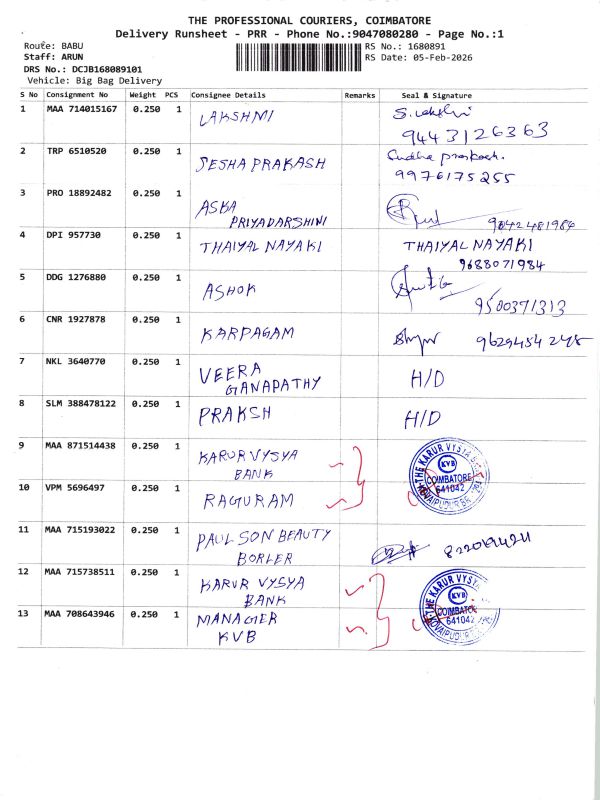 THE PROFESSIONAL COURIERS, COIMBATORE
Delivery Runsheet - PRR - Phone No.:9047080280 - Page No.:1
Route: BABU
RS No.: 1680891
Staff: ARUN
RS Date: 05-Feb-2026
DRS No.: DCJB168089101
Vehicle: Big Bag Delivery
S No Consignment No Weight PCS Consignee Details Remarks Seal & Signature
1 MAA 714015167 0.250 1 LAKSHMI
9443126363
2 TRP 6510520 0.250 1 SESHA PRAKASH
Sudha prakash.
9976175255
3 PRO 18892482 0.250 1 ASBA
PRIYADARSHINI
9842481984
4 DPI 957730 0.250 1 THAIYAL NAYAKI THAIYAL NAYAKI
9688071984
5 DDG 1276880 0.250 1 ASHOK
9500371313
6 CNR 1927878 0.250 1 KARPAGAM 9629454245
7 NKL 3640770 0.250 1 VEERA
GANAPATHY
H/D
8 SLM 388478122 0.250 1 PRAKSH H/D
9 MAA 871514438 0.250 1 KARUR VYSYA
BANK
10 VPM 5696497 0.250 1 RAGURAM
THE KARUR VYSYA BANK
KVB
COIMBATORE
641042
KOVAIPUDUR BR.
11 MAA 715193022 0.250 1 PAULSON BEAUTY
12 MAA 715738511 0.250 1 KARUR VYSYA
BANK
13 MAA 708643946 0.250 1 MANAGER
KVB
THE KARUR VYSYA
KVB
COIMBATOR
641042
KOVAIPUDUR